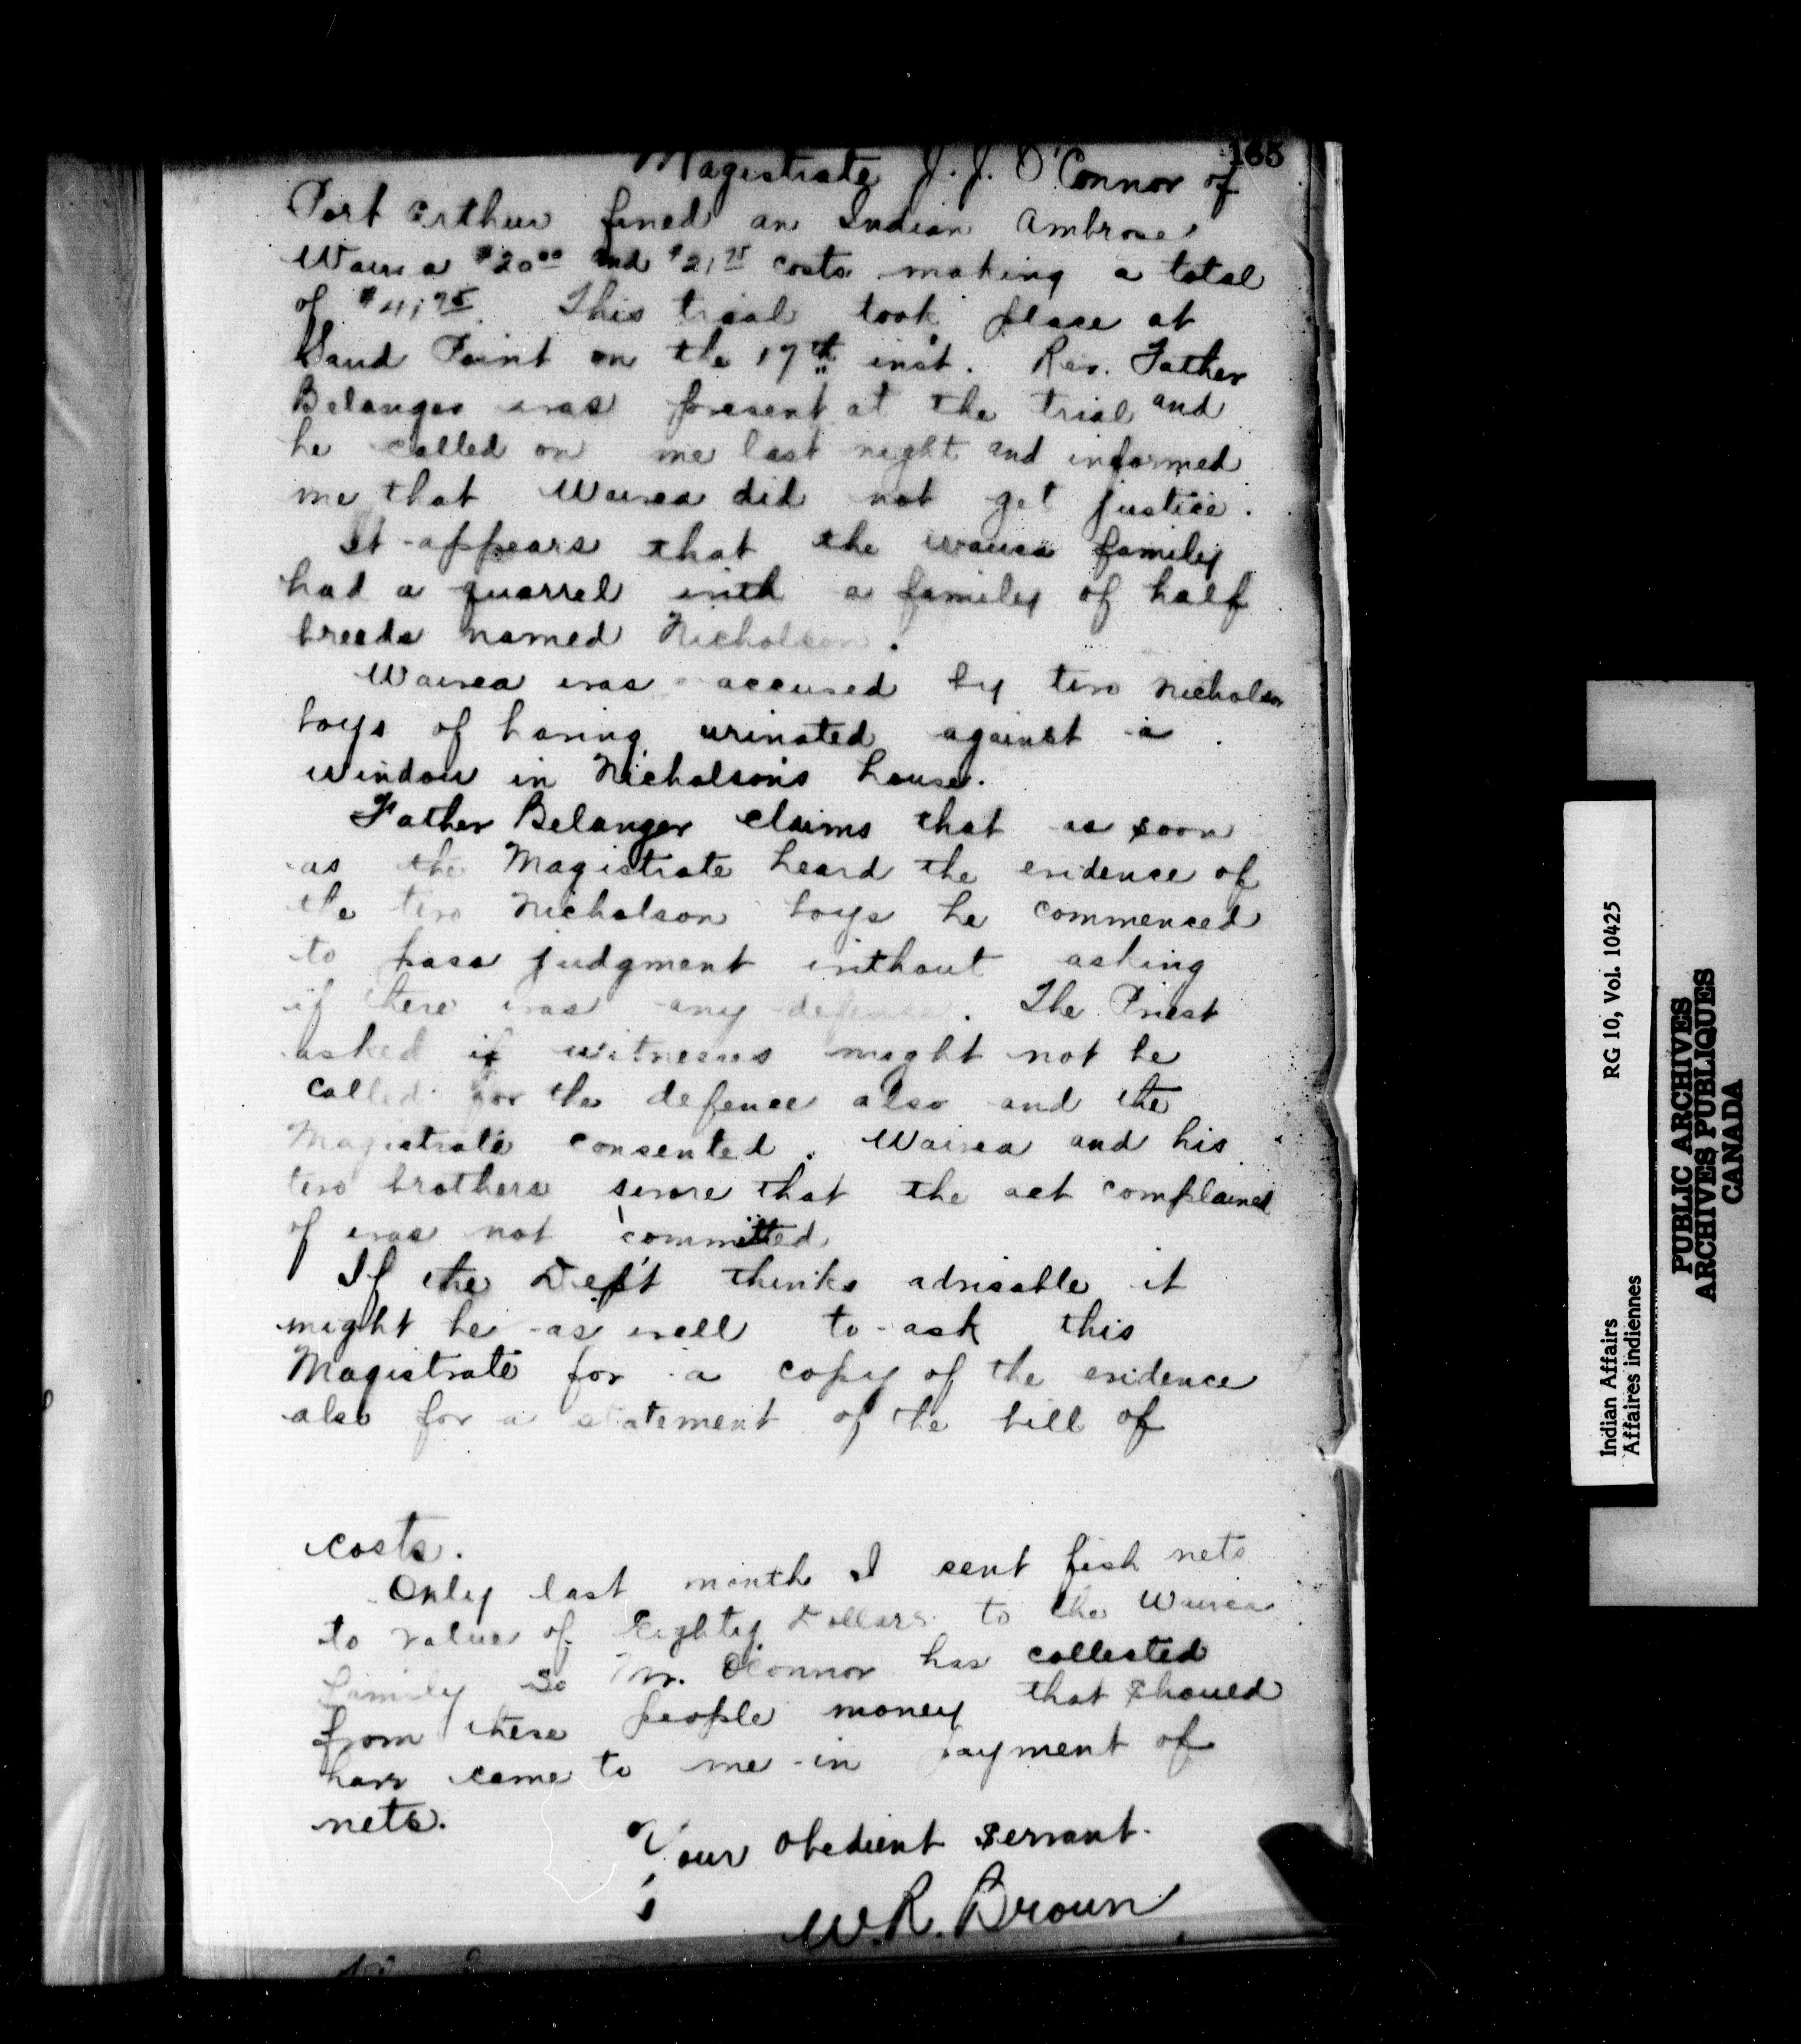 165
Magistrate J. J. O'Connor of
Port Arthur fined an Indian Ambrose
Wawia $20.00 and $21.75 costs making a total
of $41.75. This trial took place at
Sand Point on the 17th inst. Rev. Father
Belanger was present at the trial and
he called on me last night and informed
me that Wawia did not get justice.
It appears that the wawia family
had a quarrel with a family of half
breeds named Nicholson.
Wawia was accused by two Nicholson
boys of having urinated against a
window in Nicholson's house.
Father Belanger claims that as soon
as the Magistrate heard the evidence of
the two Nicholson boys he commenced
to pass judgment without asking
if there was any defence. The Priest
asked if witnesses might not be
called for the defence also and the
Magistrate consented. Wawia and his
two brothers swore that the act complained
of was not committed
If the Dep't thinks advisable it
might be as well to ask this
Magistrate for a copy of the evidence
also for a statement of the bill of
costs.
Only last month I sent fish nets
to value of Eighty Dollars to the Wawia
family So Mr. O'Connor has collected
from these people money that should
have came to me in payment of
nets.
Your obedient servant.
W.R. Brown
Indian Affairs RG 10, Vol. 10425
Affaires indiennes
PUBLIC ARCHIVES
ARCHIVES PUBLIQUES
CANADA